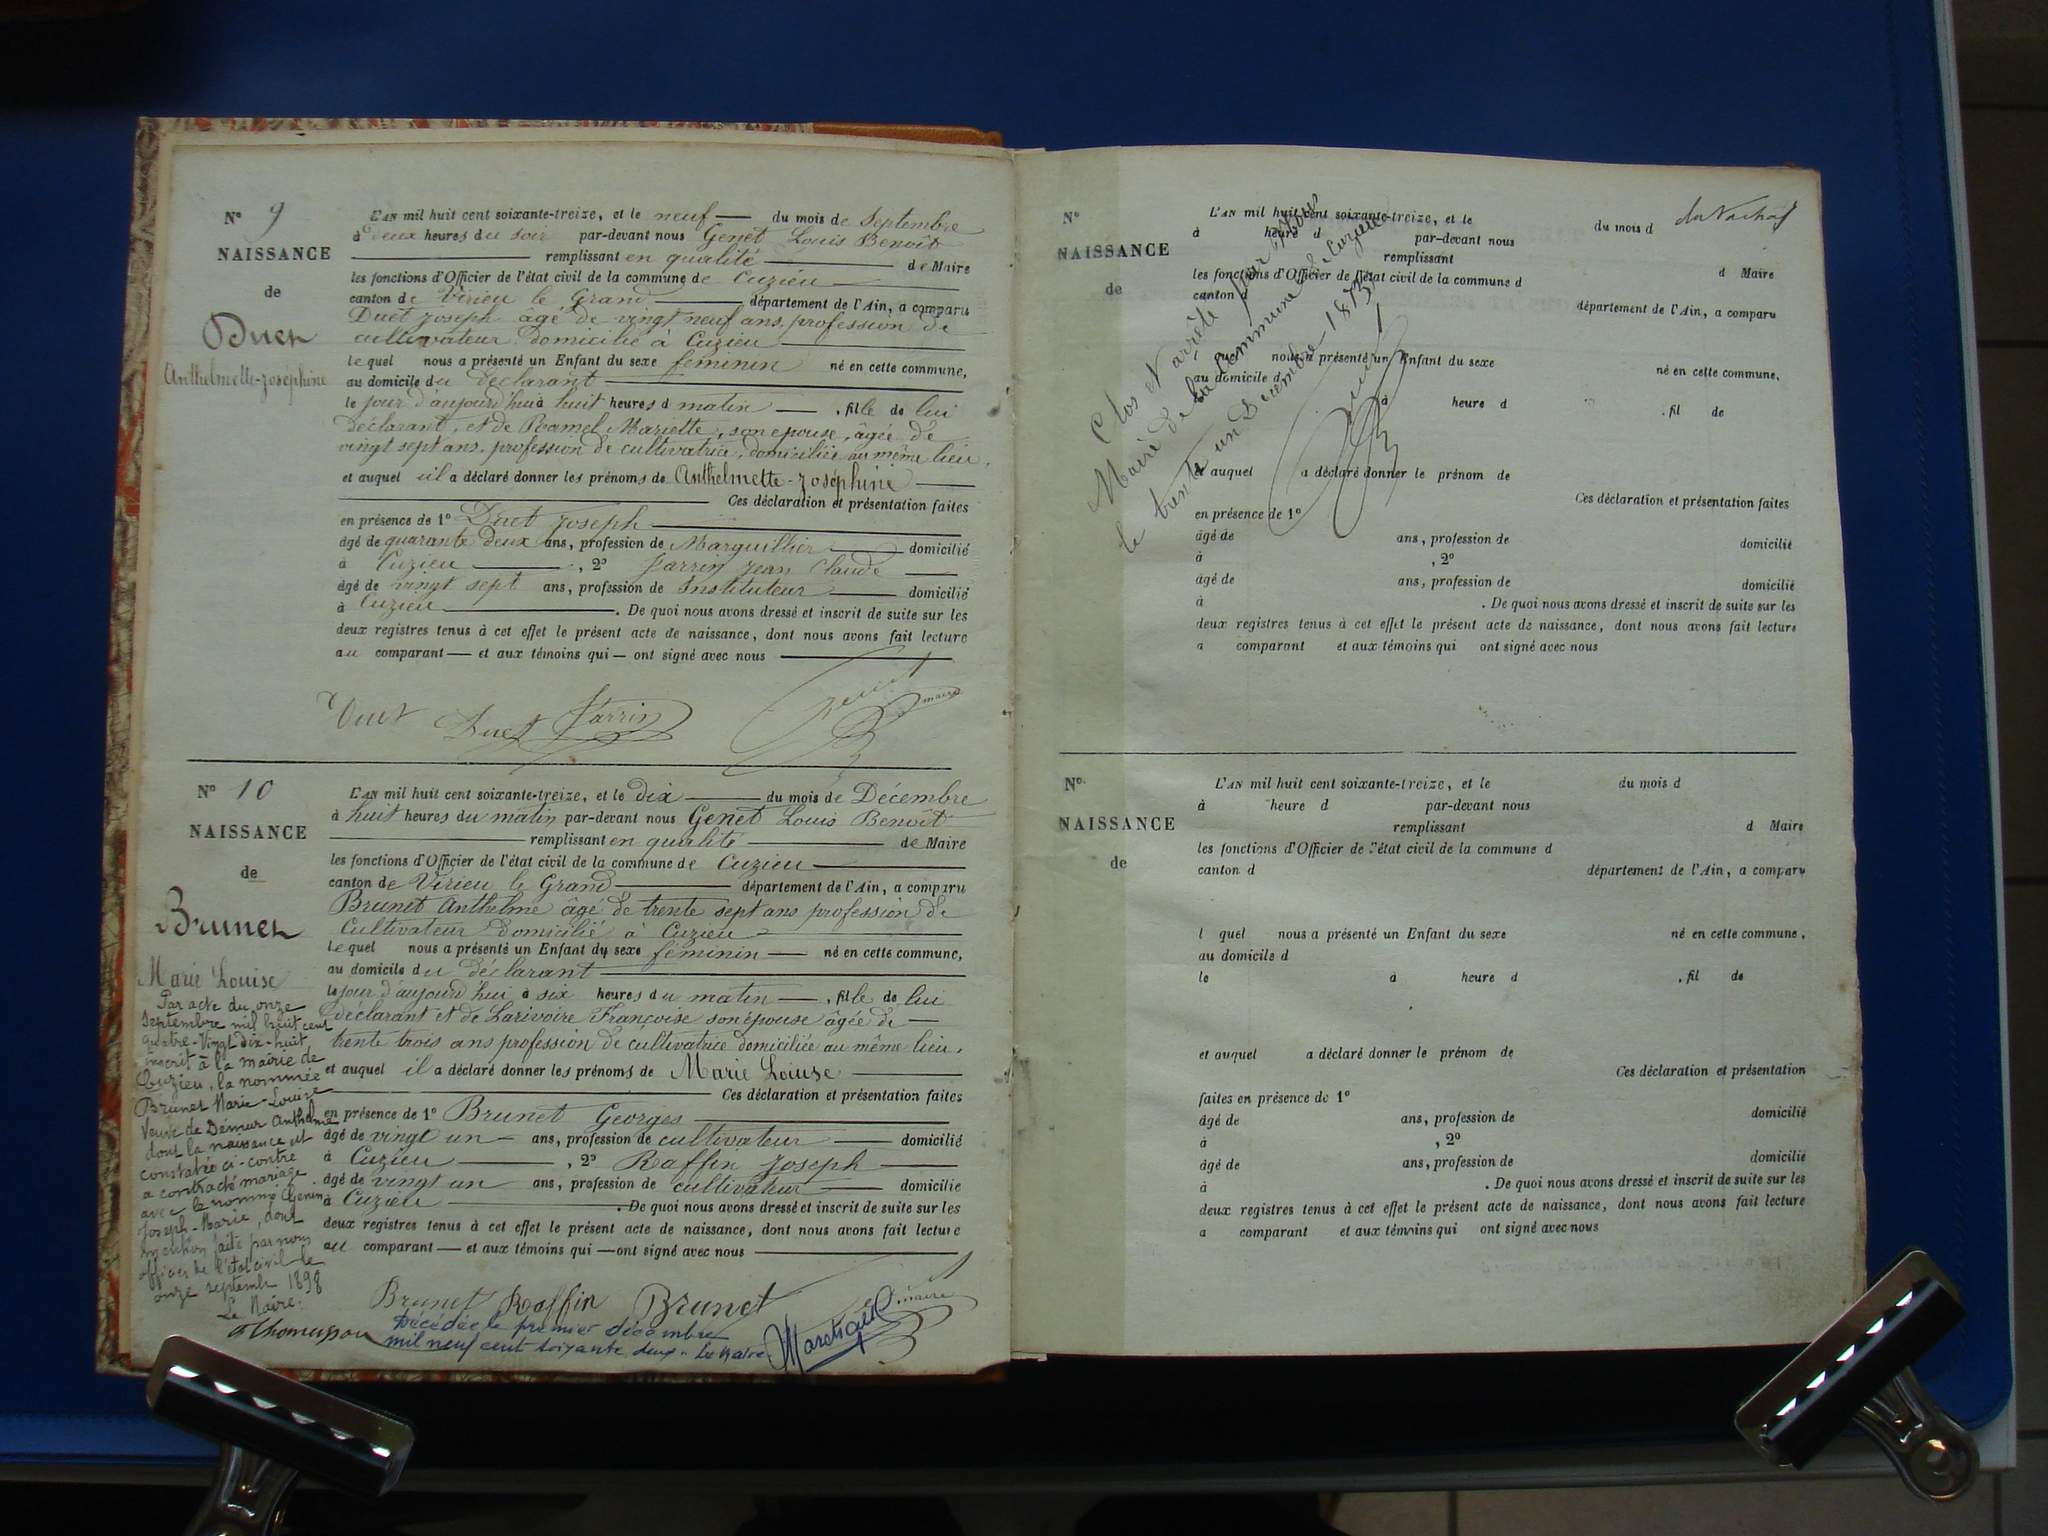 N° 9
NAISSANCE
de
Duet
Anthelmette-Joséphine
L'AN mil huit cent soixante-treize, et le neuf du mois de Septembre
à deux heures du soir par-devant nous Genet Louis Benoît
remplissant en qualité de Maire
les fonctions d'Officier de l'état civil de la commune de Cuzieu
canton de Virieu le Grand département de l'Ain, a comparu
Duet Joseph âgé de vingt neuf ans, profession de
cultivateur domicilié à Cuzieu
lequel nous a présenté un Enfant du sexe féminin né en cette commune,
au domicile du déclarant
le jour d'aujourd'hui à huit heures d matin , fille de lui
déclarant, et de Ramel Mariette, son épouse, âgée de
vingt sept ans, profession de cultivatrice, domiciliée au même lieu,
et auquel il a déclaré donner les prénoms de Anthelmette-Joséphine
Ces déclaration et présentation faites
en présence de 1° Duet Joseph
âgé de quarante deux ans, profession de Marguillier domicilié
à Cuzieu , 2° Jarrin Jean Claude
âgé de vingt sept ans, profession de Instituteur domicilié
à Cuzieu . De quoi nous avons dressé et inscrit de suite sur les
deux registres tenus à cet effet le présent acte de naissance, dont nous avons fait lecture
au comparant et aux témoins qui ont signé avec nous
Duet Duet Jarrin Genet maire
N° 10
NAISSANCE
de
Brunet
Marie Louise
Par acte du onze
Septembre mil huit cent
quatre-Vingt-dix-huit
inscrit à la mairie de
Cuzieu, la nommée
Brunet Marie-Louise
Veuve de Démeur Anthelme
dont la naissance est
constatée ci-contre
a contracté mariage
avec le nommé Genin
Joseph-Marie, dont
mention faite par nous
officier de l'état civil le
onze septembre 1898
Le Maire:
L'AN mil huit cent soixante-treize, et le dix du mois de Décembre
à huit heures du matin par-devant nous Genet Louis Benoît
remplissant en qualité de Maire
les fonctions d'Officier de l'état civil de la commune de Cuzieu
canton de Virieu le Grand département de l'Ain, a comparu
Brunet Anthelme âgé de trente sept ans profession de
Cultivateur domicilié à Cuzieu
lequel nous a présenté un Enfant du sexe féminin né en cette commune,
au domicile du déclarant
le jour d'aujourd'hui à six heures du matin , fille de lui
déclarant et de Larivoire Françoise son épouse âgée de
trente trois ans profession de cultivatrice domiciliée au même lieu,
et auquel il a déclaré donner les prénoms de Marie Louise
Ces déclaration et présentation faites
en présence de 1° Brunet Georges
âgé de vingt un ans, profession de cultivateur domicilié
à Cuzieu , 2° Raffin Joseph
âgé de vingt un ans, profession de cultivateur domicilié
à Cuzieu . De quoi nous avons dressé et inscrit de suite sur les
deux registres tenus à cet effet le présent acte de naissance, dont nous avons fait lecture
au comparant et aux témoins qui ont signé avec nous
Brunet Raffin Brunet maire
Décédée le premier décembre
mil neuf cent soixante deux. Le Maire
N°
NAISSANCE
de
L'AN mil huit cent soixante-treize, et le du mois d
à heure d par-devant nous
remplissant d Maire
les fonctions d'Officier de l'état civil de la commune d
canton d département de l'Ain, a comparu
nous a présenté un Enfant du sexe né en cette commune,
au domicile d
à heure d , fil de
et auquel a déclaré donner le prénom de
Ces déclaration et présentation faites
en présence de 1°
âgé de ans, profession de domicilié
à , 2°
âgé de ans, profession de domicilié
à . De quoi nous avons dressé et inscrit de suite sur les
deux registres tenus à cet effet le présent acte de naissance, dont nous avons fait lecture
a comparant et aux témoins qui ont signé avec nous
Clos et arrêté par Nous
Maire de la Commune de Cuzieu
le trente un Décembre 1873
N°
NAISSANCE
de
L'AN mil huit cent soixante-treize, et le du mois d
à heure d par-devant nous
remplissant d Maire
les fonctions d'Officier de l'état civil de la commune d
canton d département de l'Ain, a comparu
l quel nous a présenté un Enfant du sexe né en cette commune,
au domicile d
le à heure d , fil de
et auquel a déclaré donner le prénom de
Ces déclaration et présentation
faites en présence de 1°
âgé de ans, profession de domicilié
à , 2°
âgé de ans, profession de domicilié
à . De quoi nous avons dressé et inscrit de suite sur les
deux registres tenus à cet effet le présent acte de naissance, dont nous avons fait lecture
a comparant et aux témoins qui ont signé avec nous